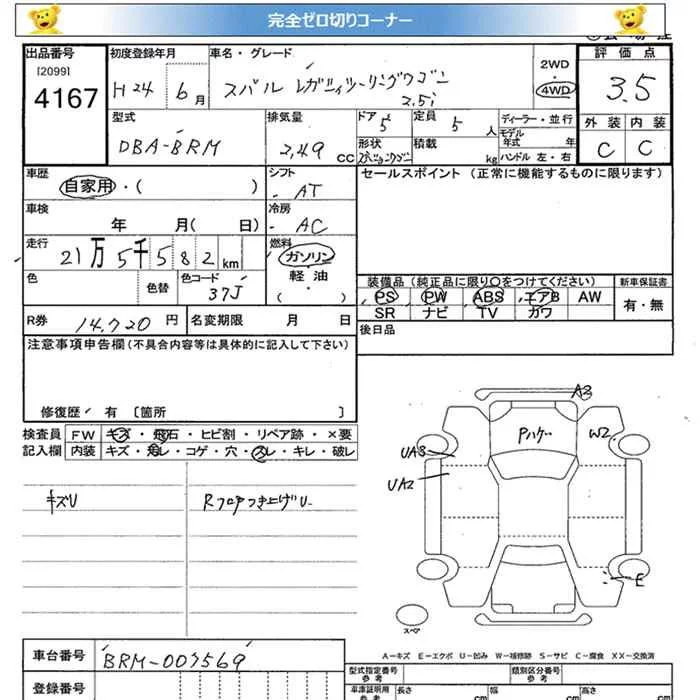 完全ゼロ切りコーナー
出品番号 初度登録年月 車名・グレード 評価点
[2099]
4167 H24 6月 スバル レガシィツーリングワゴン 2WD 3.5
2.5i 4WD
型式 排気量 ドア 定員 ディーラー・並行 外装 内装
DBA-BRM 2,49 CC 5 5 人 モデル年式 年 C C
形状 積載 kg ハンドル 左・右
車歴 シフト セールスポイント(正常に機能するものに限ります)
自家用・( ) AT
車検 冷房
年 月( 日) AC
走行 燃料
21万5千582km ガソリン
色 色替 色コード 軽・油 装備品(純正品に限り○をつけてください) 新車保証書
37J ( ) PS PW ABS エアB AW 有・無
R券 14,720円 名変期限 月 日 SR ナビ TV カワ
注意事項申告欄(不具合内容等は具体的に記入して下さい) 後日品
修復歴 有 〔箇所 〕
検査員 FW キズ・飛石・ヒビ割・リペア跡・×要
記入欄 内装 キズ・汚レ・コゲ・穴・スレ・キレ・破レ
キズU Rフロアつき上げU
A3
Pハゲ W2
UA3
UA2
E
スペア
A-キズ E-エクボ U-凹み W-補修跡 S-サビ C-腐食 XX-交換済
車台番号 BRM-007569 型式指定番号 参考 類別区分番号 参考
登録番号 車庫証明用 参考 長さ cm 幅 cm 高さ cm